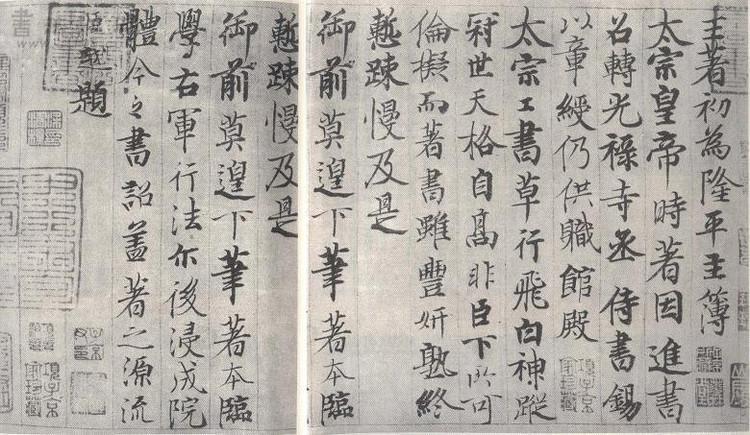 王著初為隆平主簿
太宗皇帝時著因進書
召轉光祿寺丞侍書錫
以章綬仍供職館殿
太宗工書草行飛白神蹤
冠世天格自高非臣下所可
倫擬而著書雖豐妍熟終
慙疎慢及是
御前莫遑下筆著本臨
慙疎慢及是
御前莫遑下筆著本臨
學右軍行法尒後浸成院
體今之書詔蓋著之源流
題